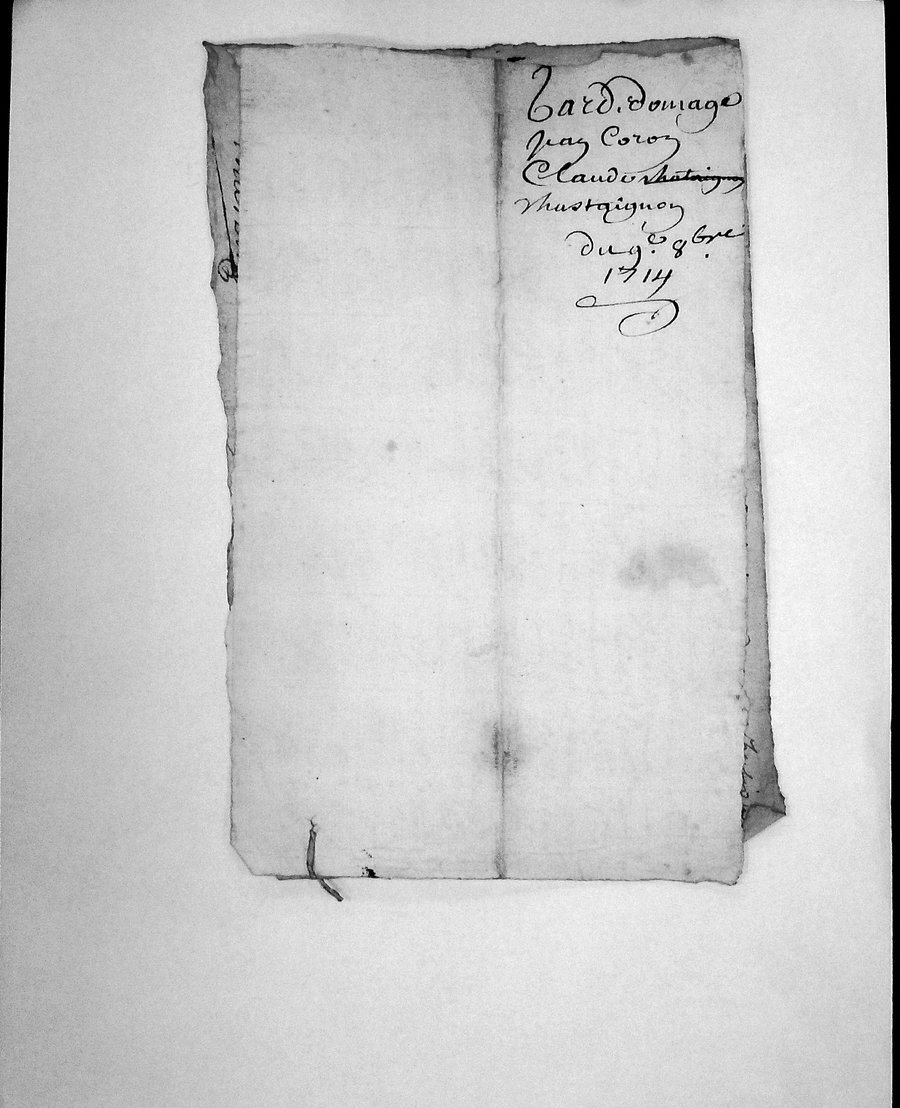 Bard. domage
jean Coron
Claude chataignon
chastaignon
du 9e. 8bre.
1714